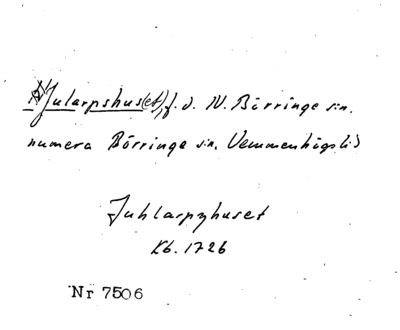 Jularpshus(et), f. d. N. Börringe sn.
numera Börringe sn. Vemmenhögs hd
Juhlarpzhuset
Kb. 1726
Nr 7506